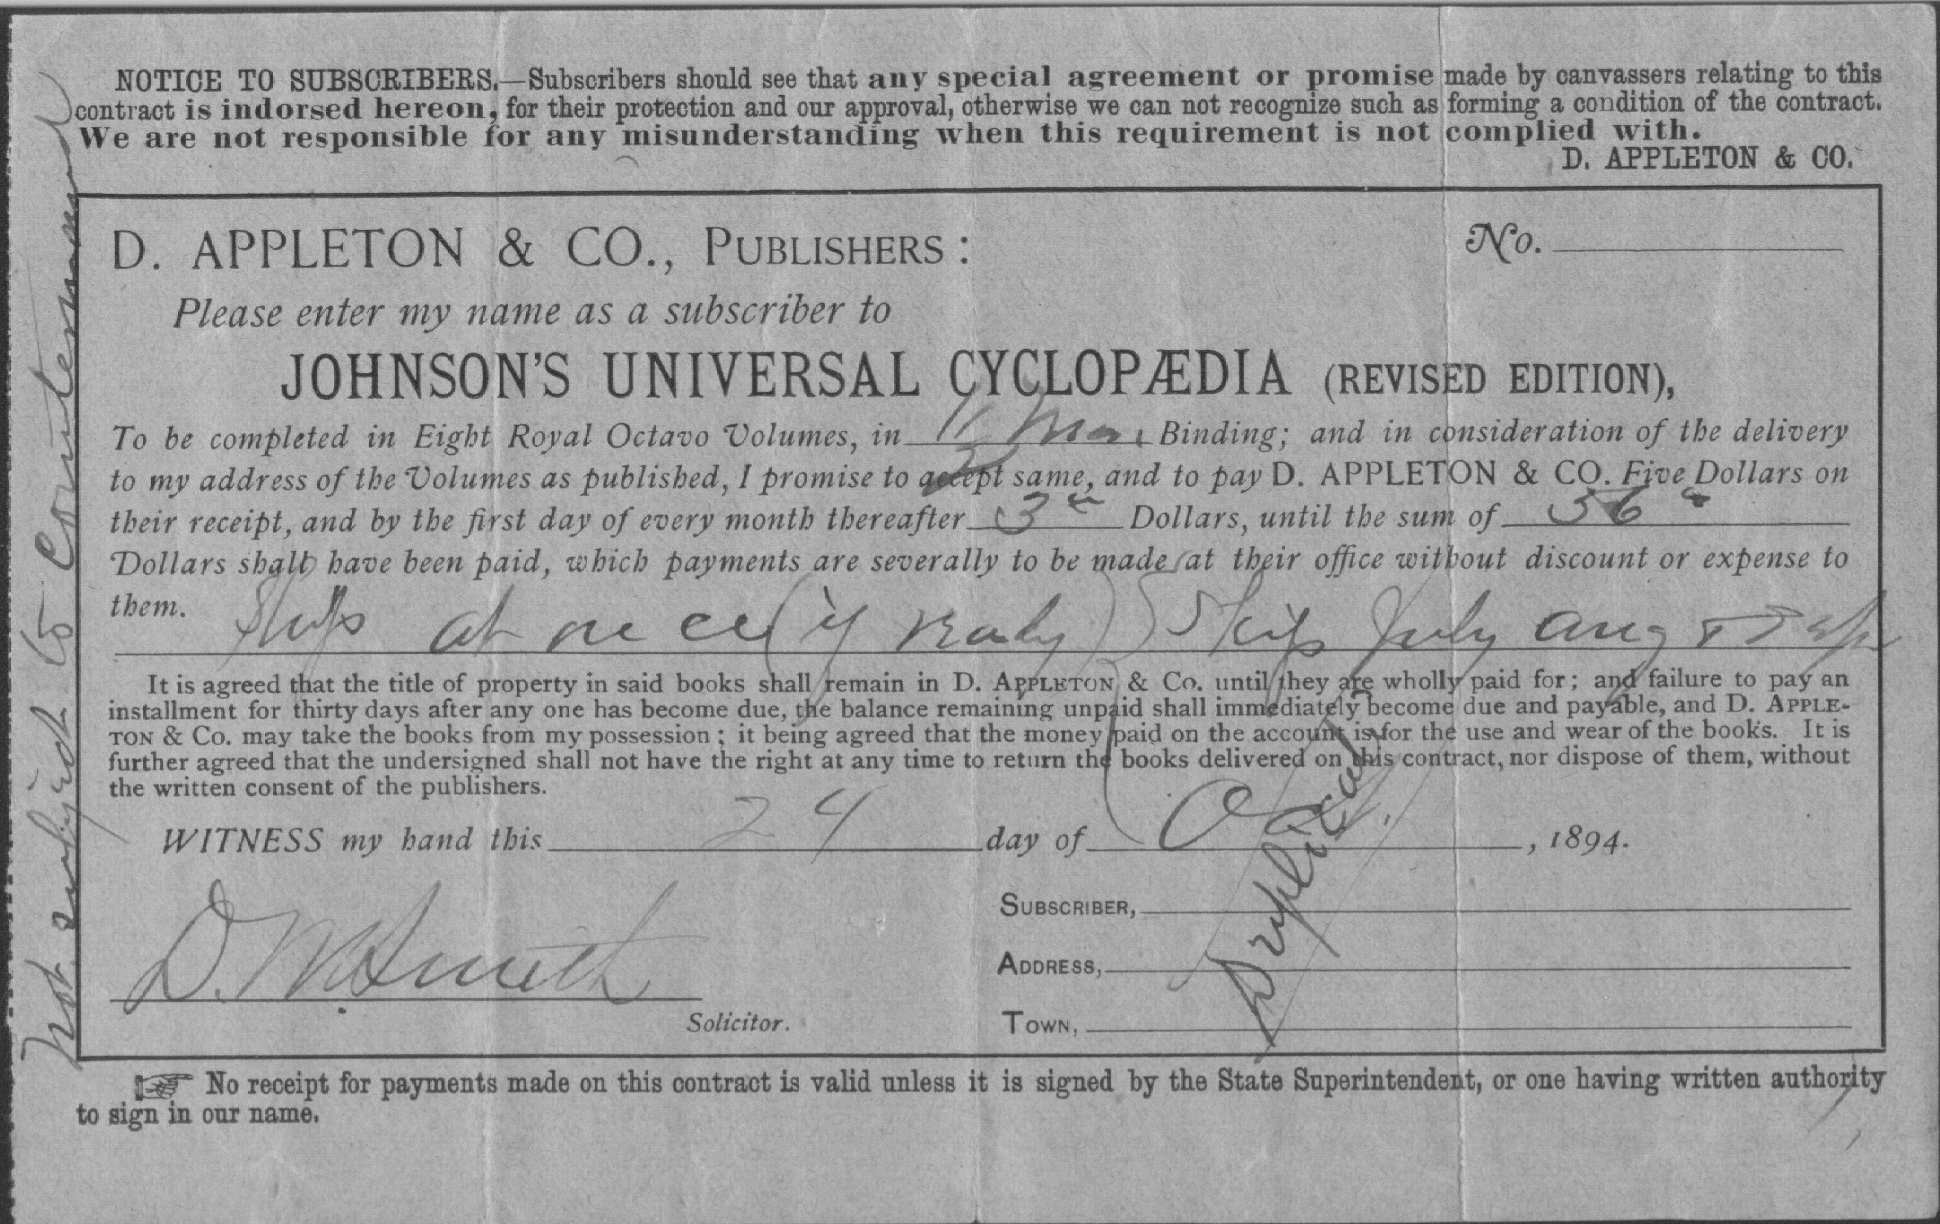 NOTICE TO SUBSCRIBERS.—Subscribers should see that any special agreement or promise made by canvassers relating to this
contract is indorsed hereon, for their protection and our approval, otherwise we can not recognize such as forming a condition of the contract.
We are not responsible for any misunderstanding when this requirement is not complied with.
D. APPLETON & CO.
D. APPLETON & CO., PUBLISHERS:
No.
Please enter my name as a subscriber to
JOHNSON'S UNIVERSAL CYCLOPÆDIA (REVISED EDITION),
To be completed in Eight Royal Octavo Volumes, in 1/2 Mor Binding; and in consideration of the delivery
to my address of the Volumes as published, I promise to accept same, and to pay D. APPLETON & CO. Five Dollars on
their receipt, and by the first day of every month thereafter 3 Dollars, until the sum of 56
Dollars shall have been paid, which payments are severally to be made at their office without discount or expense to
them.
Ship at once (if ready) Skip July Aug & Sep
It is agreed that the title of property in said books shall remain in D. APPLETON & CO. until they are wholly paid for; and failure to pay an
installment for thirty days after any one has become due, the balance remaining unpaid shall immediately become due and payable, and D. APPLE-
TON & CO. may take the books from my possession; it being agreed that the money paid on the account is for the use and wear of the books. It is
further agreed that the undersigned shall not have the right at any time to return the books delivered on this contract, nor dispose of them, without
the written consent of the publishers.
WITNESS my hand this 24 day of Oct. , 1894.
D. M. Smith
Solicitor.
SUBSCRIBER,
ADDRESS,
TOWN,
Duplicate
☞ No receipt for payments made on this contract is valid unless it is signed by the State Superintendent, or one having written authority
to sign in our name.
Not subject to Countermand